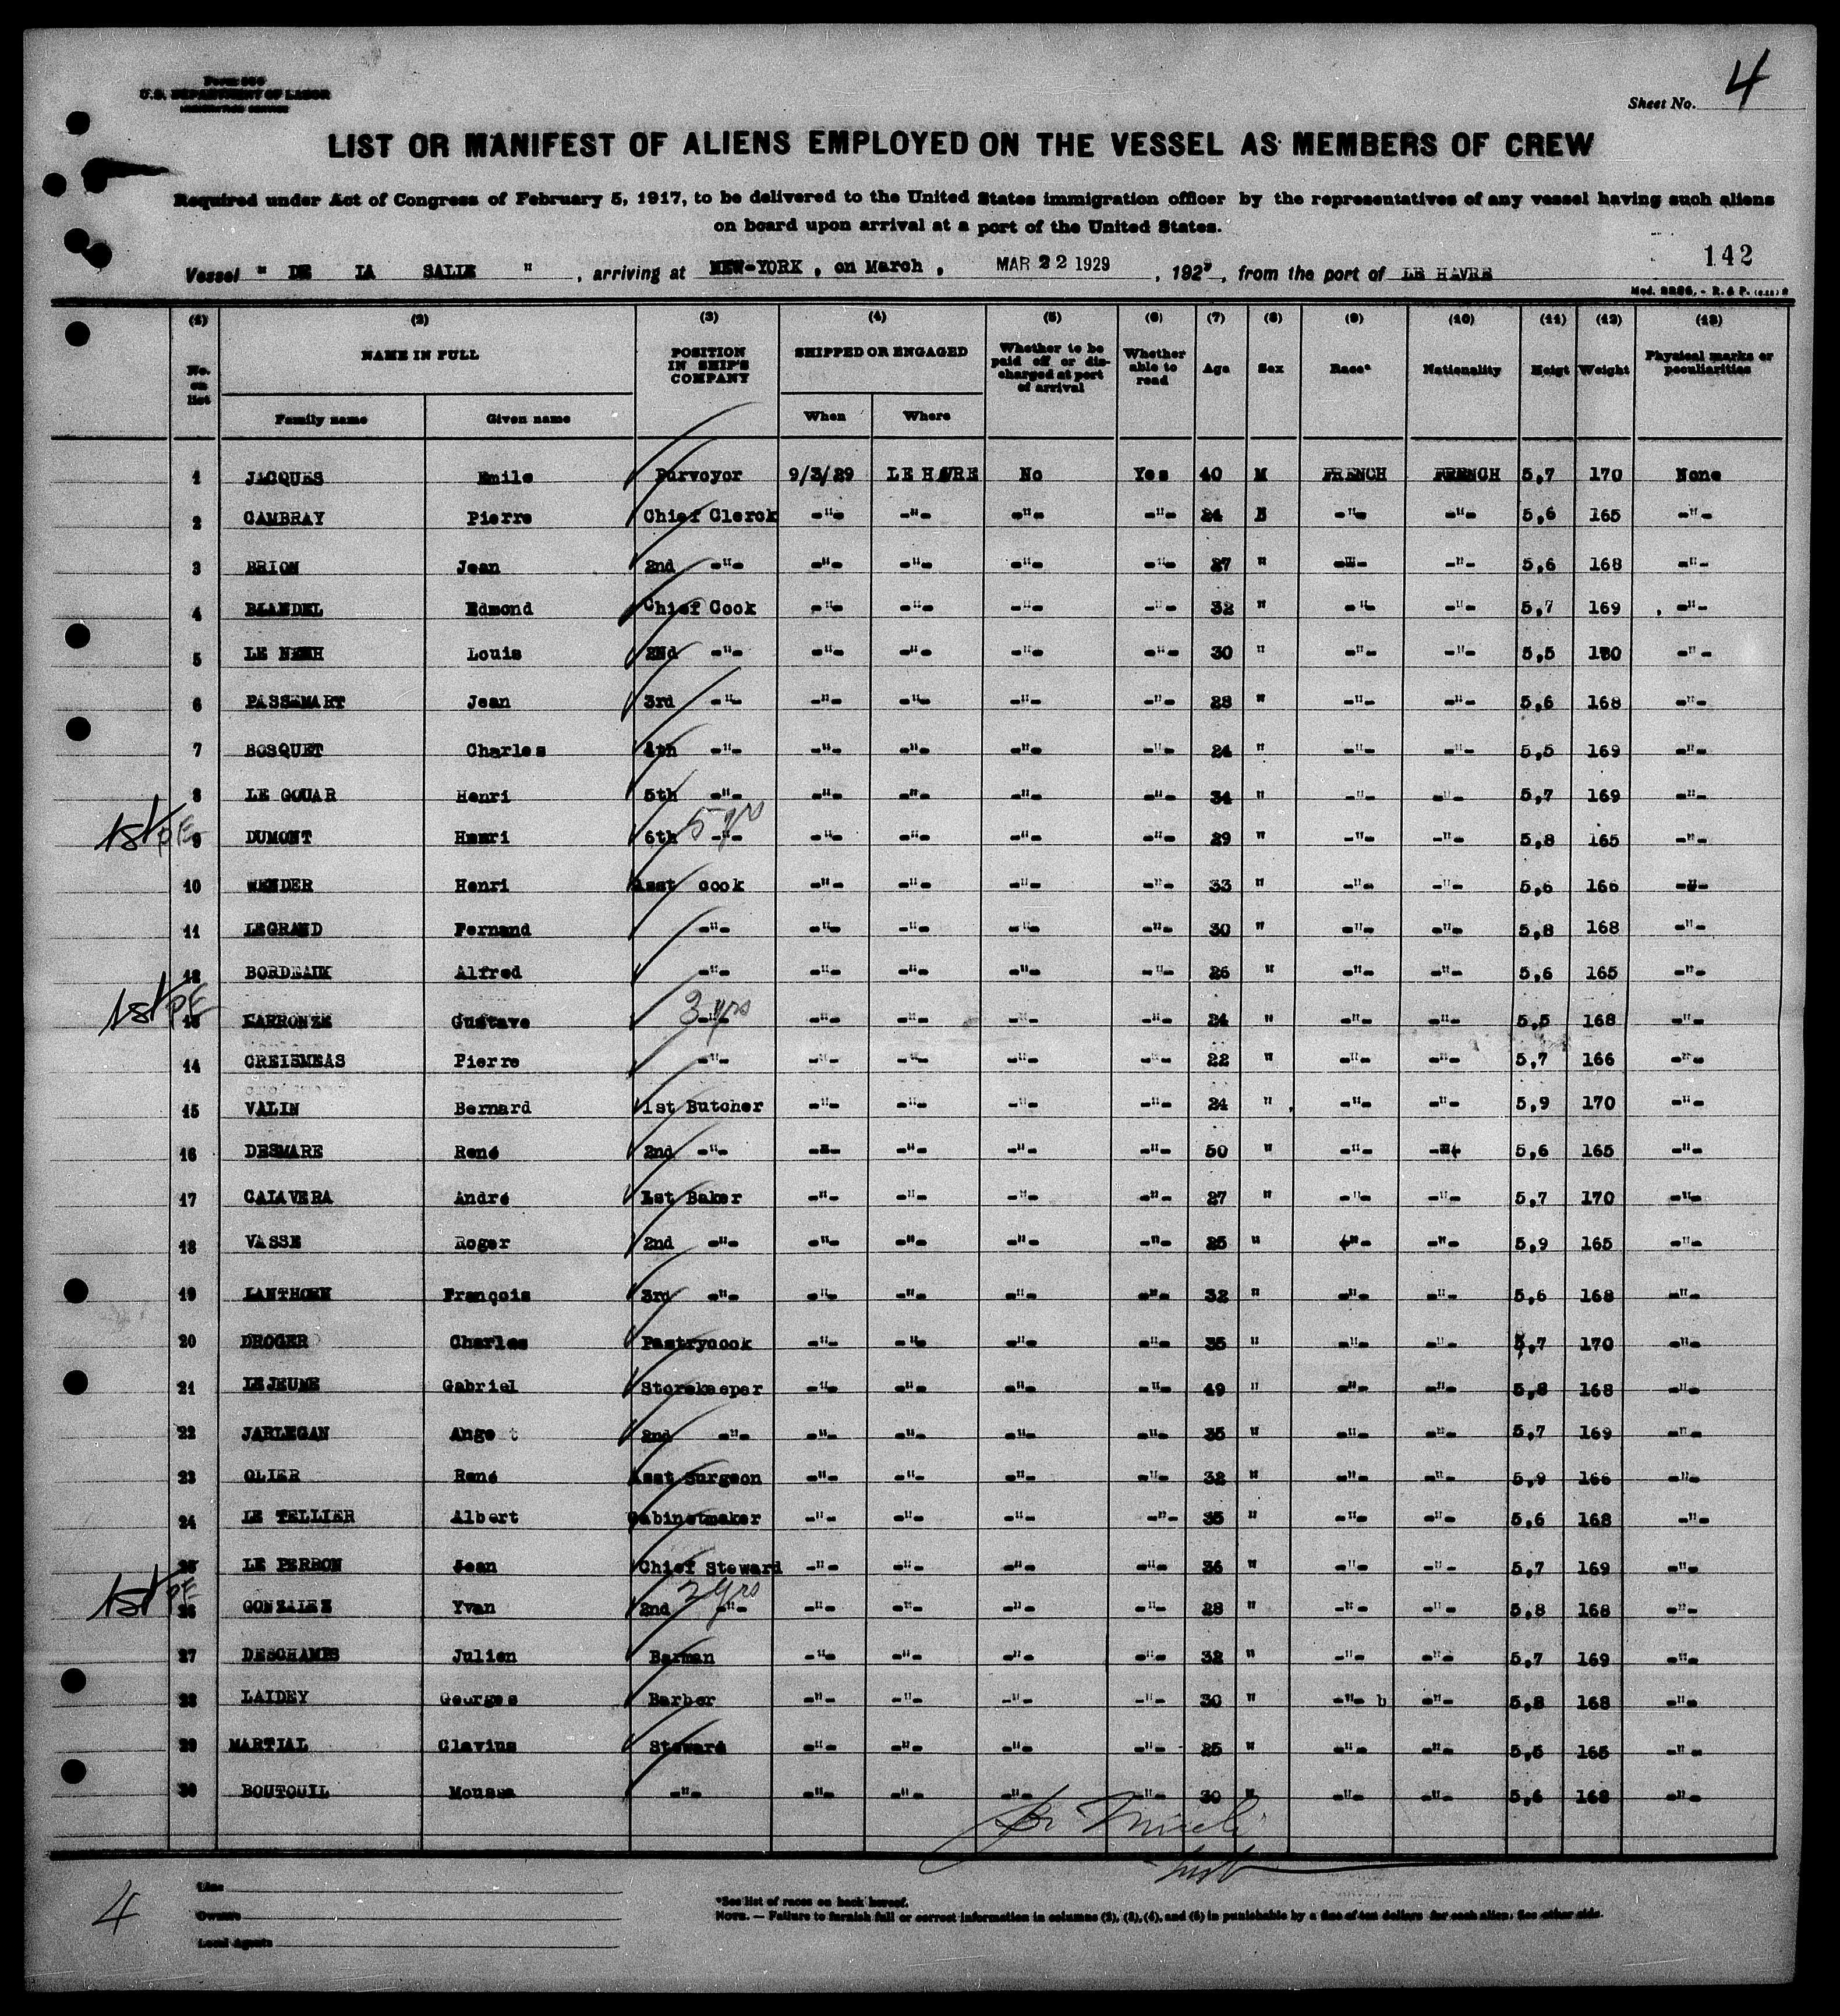 Form 680
U.S. DEPARTMENT OF LABOR
IMMIGRATION SERVICE
Sheet No. 4
LIST OR MANIFEST OF ALIENS EMPLOYED ON THE VESSEL AS MEMBERS OF CREW
Required under Act of Congress of February 5, 1917, to be delivered to the United States immigration officer by the representatives of any vessel having such aliens
on board upon arrival at a port of the United States.
142
Vessel " DE LA SALLE ", arriving at NEW-YORK, on March, MAR 22 1929, 192, from the port of LE HAVRE
(1) (2) (3) (4) (5) (6) (7) (8) (9) (10) (11) (12) (13)
No. on list NAME IN FULL POSITION IN SHIP'S COMPANY SHIPPED OR ENGAGED Whether to be paid off or discharged at port of arrival Whether able to read Age Sex Race* Nationality Heigt Weight Physical marks or peculiarities
Family name Given name When Where
1 JACQUES Emile Purveyor 9/3/29 LE HAVRE No Yes 40 M FRENCH FRENCH 5,7 170 None
2 CAMBRAY Pierre Chief Clerck -"- -"- -"- -"- 24 -"- -"- 5,6 165 -"-
3 BRION Jean 2nd -"- -"- -"- -"- -"- 27 " -"- -"- 5,6 168 -"-
4 BLANDEL Edmond Chief Cook -"- -"- -"- -"- 32 " -"- -"- 5,7 169 -"-
5 LE Louis 2Nd -"- -"- -"- -"- -"- 30 " -"- -"- 5,5 180 -"-
6 PASSEMART Jean 3rd -"- -"- -"- -"- -"- 28 " -"- -"- 5,6 168 -"-
7 BOSQUET Charles 4th -"- -"- -"- -"- -"- 24 " -"- -"- 5,5 169 -"-
8 LE GOUAR Henri 5th -"- -"- -"- -"- -"- 34 " -"- -"- 5,7 169 -"-
1st PE 9 DUMONT Henri 6th -"- 5 yrs -"- -"- -"- -"- 29 " -"- -"- 5,8 165 -"-
10 WENDER Henri Asst cook -"- -"- -"- -"- 33 " -"- -"- 5,6 166 -"-
11 LEGRAND Fernand -"- -"- -"- -"- -"- 30 " -"- -"- 5,8 168 -"-
12 BORDEAUX Alfred -"- -"- -"- -"- -"- 26 " -"- -"- 5,6 165 -"-
1st PE 13 Gustave -"- 3 yrs -"- -"- -"- -"- 24 " -"- -"- 5,5 168 -"-
14 CREISMEAS Pierre -"- -"- -"- -"- -"- 22 " -"- -"- 5,7 166 -"-
15 VALIN Bernard 1st Butcher -"- -"- -"- -"- 24 " -"- -"- 5,9 170 -"-
16 DESMARE René 2nd -"- -"- -"- -"- -"- 50 " -"- -"- 5,6 165 -"-
17 CALAVERA André 1st Baker -"- -"- -"- -"- 27 " -"- -"- 5,7 170 -"-
18 VASSE Roger 2nd -"- -"- -"- -"- -"- 25 " -"- -"- 5,9 165 -"-
19 LANTHOEN François 3rd -"- -"- -"- -"- -"- 32 " -"- -"- 5,6 168 -"-
20 DROGER Charles Pastrycook -"- -"- -"- -"- 35 " -"- -"- 5,7 170 -"-
21 LEJEUNE Gabriel Storekeeper -"- -"- -"- -"- 49 " -"- -"- 5,8 168 -"-
22 JARLEGAN Ange 2nd -"- -"- -"- -"- -"- 35 " -"- -"- 5,7 169 -"-
23 OLIER René Asst Surgeon -"- -"- -"- -"- 32 " -"- -"- 5,9 166 -"-
24 LE TELLIER Albert Cabinetmaker -"- -"- -"- -"- 35 " -"- -"- 5,6 168 -"-
25 LE PERRON Jean Chief Steward -"- -"- -"- -"- 36 " -"- -"- 5,7 169 -"-
1st PE 26 GONZALEZ Yvan 2nd -"- 2 yrs -"- -"- -"- -"- 28 " -"- -"- 5,8 168 -"-
27 DESCHAMPS Julien Barman -"- -"- -"- -"- 32 " -"- -"- 5,7 169 -"-
28 LAIDEY Georges Barber -"- -"- -"- -"- 30 " -"- b -"- 5,8 168 -"-
29 MARTIAL Clavius Steward -"- -"- -"- -"- 25 " -"- -"- 5,5 165 -"-
30 BOUTOUIL Moussa -"- -"- -"- -"- -"- 30 " -"- -"- 5,6 168 -"-
4
Line
Owners
Local Agents
*See list of races on back hereof.
NOTE. — Failure to furnish full or correct information in columns (2), (3), (4), and (6) is punishable by a fine of ten dollars for each alien. See other side.